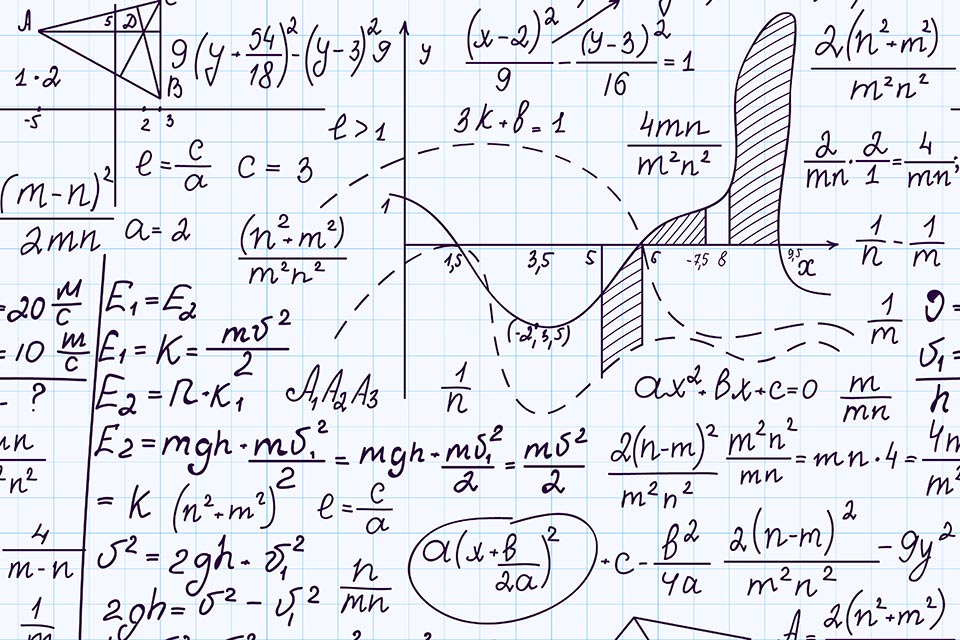 A
5
D
1·2
B
-5
2
3
9(y+54/18)²-(y-3)²9
y
(x-2)²/9-(y-3)²/16=1
2(n²+m²)/m²n²
ℓ>1
3K+в=1
4mn/m²n²
2/mn·2/1=4/mn;
ℓ=c/a
c=3
(m-n)²/2mn
a=2
(n²+m²)/m²n²
1
1,5
3,5
5
6
-7,5
8
9,5
x
1/n-1/m
(-2;3,5)
=20 м/с
E₁=E₂
1/m
=10 m/c
E₁=K=mб²/2
- ?
E₂=П·K₁
A₁A₂A₃
1/n
ax²+Bx+c=0
m/mn
h
E₂=mgh+mб₁²/2=mgh+mб₁²/2=mб²/2
2(n-m)²/m²n²
m²n²/mn=mn·4=
=K
(n²+m²)²
ℓ=c/a
4/m-n
б²=2gh+б₁²
n/mn
a(x+в/2a)²+c-в²/4a
2(n-m)²/m²n²-9y²
2gh=б²-б₁²
A=2(n²+m²)